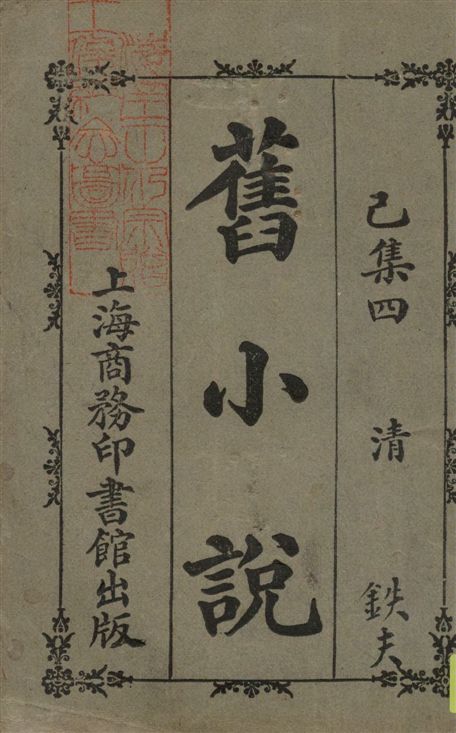 己集四 清
鉄夫
舊小說
上海商務印書館出版